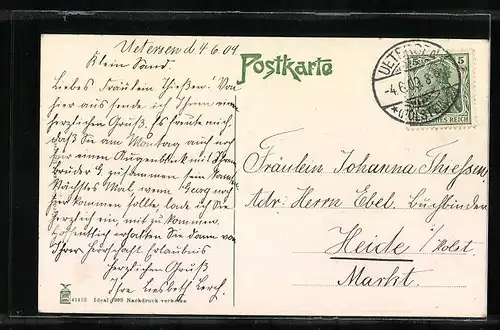 Uetersen d 4 6 09
Klein Sand.
Liebes Fräulein Thießen! Von
hier aus sende ich Ihnen einen
herzlichen Gruß. Es freute mich,
daß Sie am Montag auch noch
für einen Augenblick mit Ihrem
Bruder G. zusammen sein kon
Nächstes Mal, wenn Georg nach
kommen sollte, lade ich Sie
herzlich ein, mit zu kommen.
Hoffentlich erhalten Sie dann von
Ihrer Herrschaft Erlaubnis
Herzlichen Gruß
Ihre Liesbeth Lerch.
41472 Ideal 1909 Nachdruck verboten
Postkarte
UETERSEN
-4.6.09. 8-
* (HOLSTEIN)
5
DEUTSCHES REICH
Fräulein Johanna Thiessen
Adr: Herrn Ebel. Buchbinden
Heide i/Holst.
Markt.